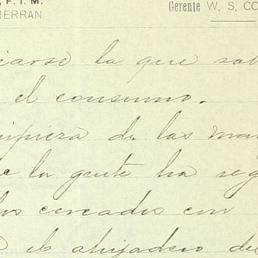 , F. I. M.
HERRAN
Gerente W. S. CO
ciarse la que sa
el consumo.
limpieza de las ma
la gente ha se
los cercados con
el ahijadero de